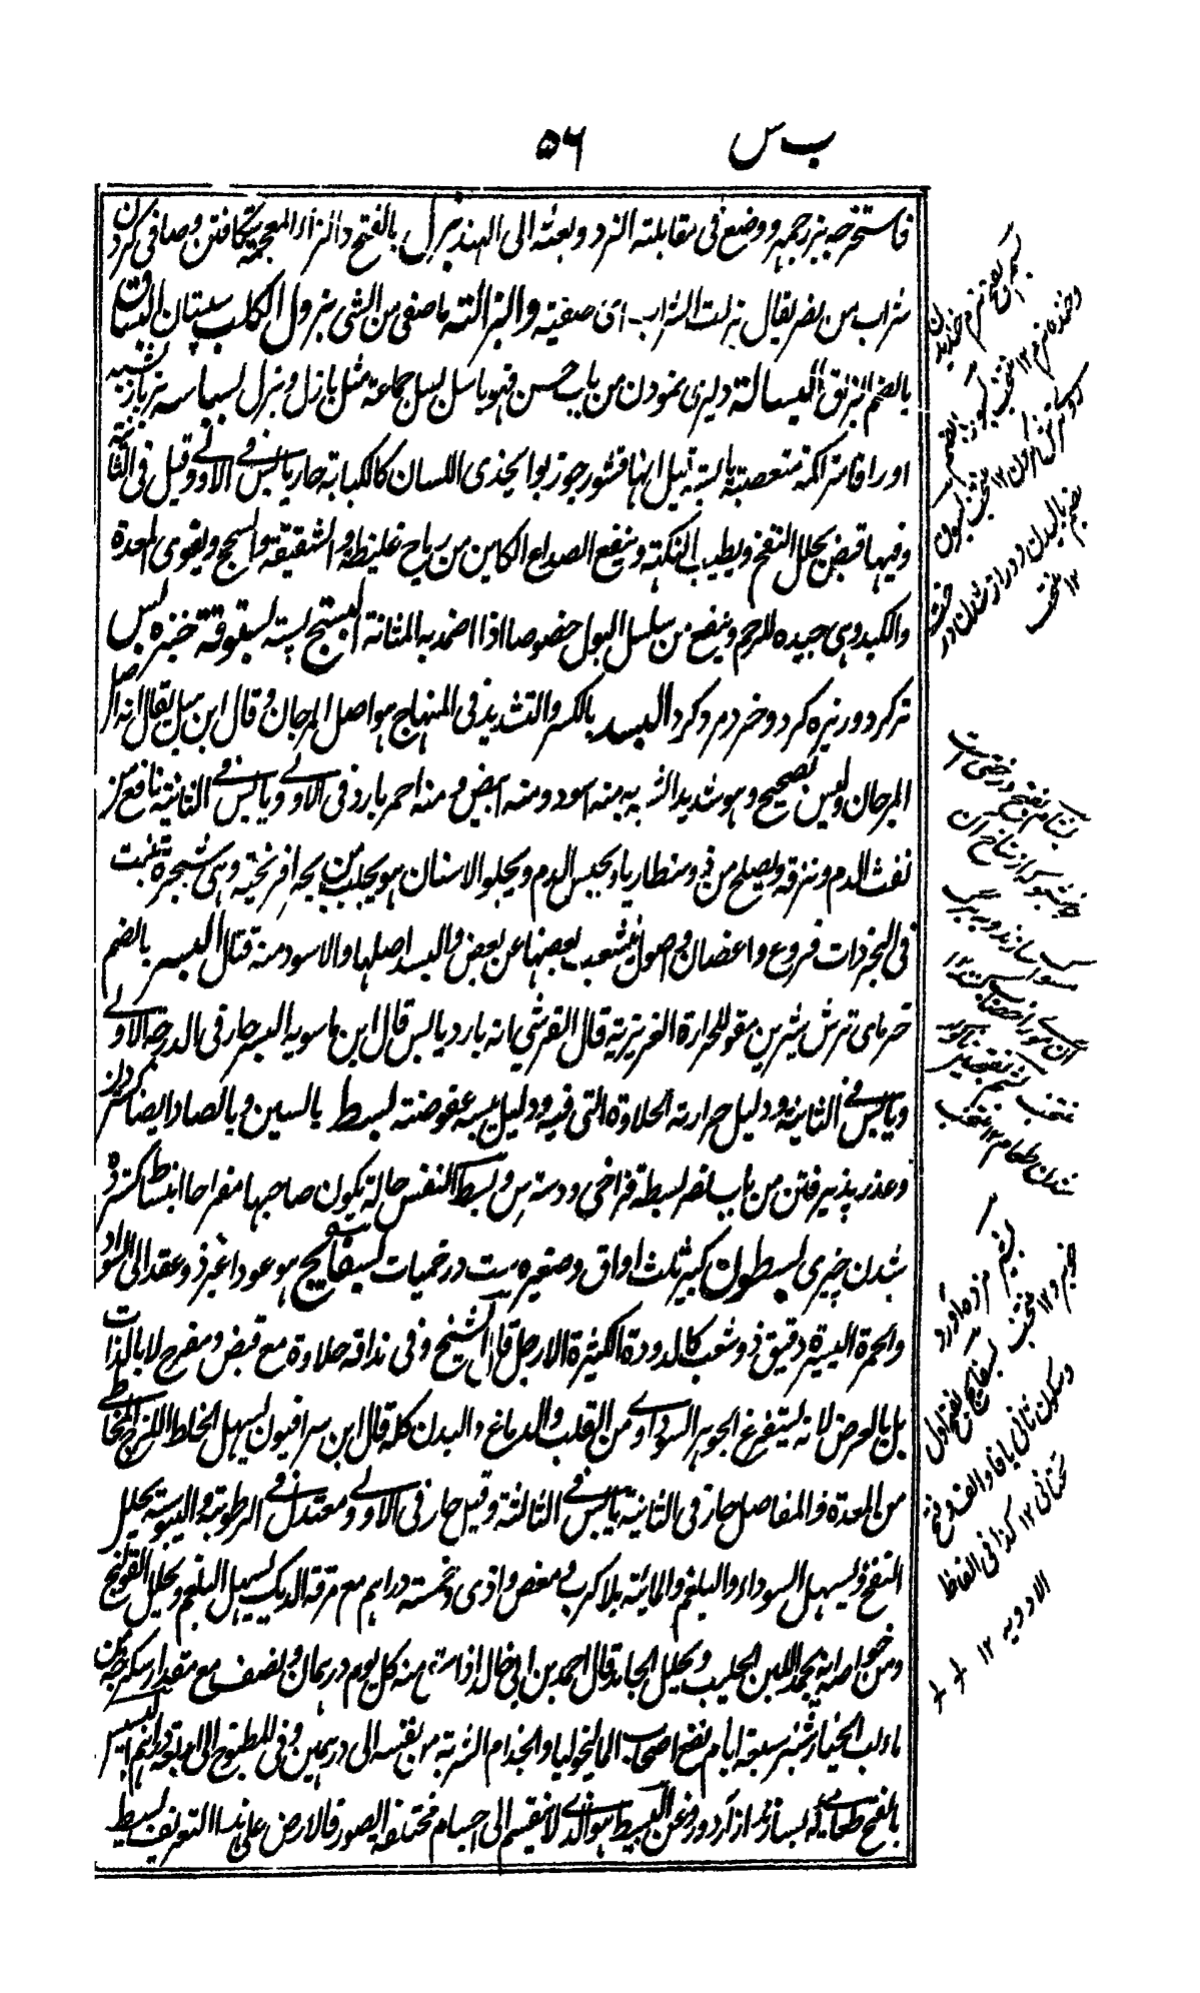 ب س ۵۶
فاستخرجه بزرجمهر ووضع فی مقابلته النرد وبعثه الی الهند بزل بالفتح والزاء المعجمة شگافتن وصافی کردن
شراب من نصر یقال بزلت الشراب ای صفیته والبزالته ماصفی من الشی بزول الکلب سپستان البساق
بالضم البزاق البسالة دلیری نمودن من باب حسن فهو باسل بسل جماعة مثل بازل وبزل بسباسه بزباز یشبه
اوراقا متراکمة متعصبة یابسة قیل انها قشور جوزبوا یحذی اللسان کالکبابة حار یابس فی الاولی وقیل فی الثانیة
وفیها قبض یحلل النفخ ویطیب النکهة وینفع الصداع الکاین من ریاح غلیظة والشقیقة والسحج ویقوی المعدة
والکبد وهی جیده للرحم وینفع من سلسل البول خصوصا اذا اضمد به المثانة البستج پسته بستوقة خنبره بس
تر کرد وریزه کرد وخرد مرد کرد البسد بالکسر والتشدید فی المنهاج هو اصل المرجان وقال ابن سیل یقال انه اصل
المرجان ولیس بصحیح وهو شدید الشبه به منه اسود ومنه ابیض ومنه احمر بارد فی الاولی ویابس فی الثانیة نافع من
نفث الدم ونزفه ویصلح من دوسنطاریا ویحبس الدم ویجلو الاسنان هو یجلب من بحر افرنجیة وهی شجرة تنبت
فی البحر ذات فروع واغصان واصول یتشعب بعضها عن بعض والبسد اصلها والاسود منه قتال البسر بالضم
خرمای ترش شیرین مقو للحرارة الغریزیة قال القرشی انه بارد یابس قال ابن ماسویه البسر حار فی الدرجة الاولی
ویابس فی الثانیة ودلیل حرارته الحلاوة التی فیه ودلیل یبسه عفوصته بسط بالسین وبالصاد ایضا گستردن
وعذر پذیرفتن من باب نصر بسطة فراخی ودسترس وبسط النفس حالة یکون صاحبها مفراحا انبساط گسترده
شدن چیزی بسطون کبیر ثلث اواق وصغیره ست درخمیات بسفایج هو عود اغبر ذو عقد الی السواد
والحمرة الیسیرة دقیق ذو شعب کالدودة الکثیرة الارجل قال الشیخ وفی مذاقه حلاوة مع قبض ومفرح لا بالذات
بل بالعرض لانه یستفرغ الجوهر السوداوی من القلب والدماغ والبدن کله قال ابن سرافیون یسهل الخلط اللزج المخاطی
من المعدة والمفاصل حار فی الثانیة یابس فی الثالثة وقیل حار فی الاولی ومعتدل فی الرطوبة والیبوسة یحلل
النفخ ویسهل السوداء والبلغم والمائیة بلا کرب ومغص واذی وخمسة دراهم مع مرقة الدیک یسهل البلغم ویحلل القولنج
ومن خواصه انه یجمد اللبن الحلیب ویحلل الجامد قال احمد بن ابی خالد اذا شرب منه کل یوم درهمان ونصف مع مقدار سکرجه من
ماء لب الخیارشنبر سبعة ایام نفع اصحاب المالیخولیا والجذام الشربة من بنفسه الی درهمین وفی المطبوخ الی اربعة دراهم البسیس
بالفتح طعامی که بسازند از آرد وروغن البسیط هو الذی لا ینقسم الی اجسام مختلفة الصور فالارض علی هذا التعریف بسیط
بسم بفتح نرم خندیدن
ودندانه سرم ۱۲ منتخب
روترش کردن ۱۲ منتخب بسوق
بضم بالیدن ودراز شدن درخت
۱۲ منتخب
بشام بفتح درختی است
خوشبو که از شاخ آن
مسواک سازند
شدن طعام ۱۲ منتخب
وسکون ثانی یا فاء والف وفتح
تحتانی ۱۲ کذا فی الفاظ
الادویه ۱۲